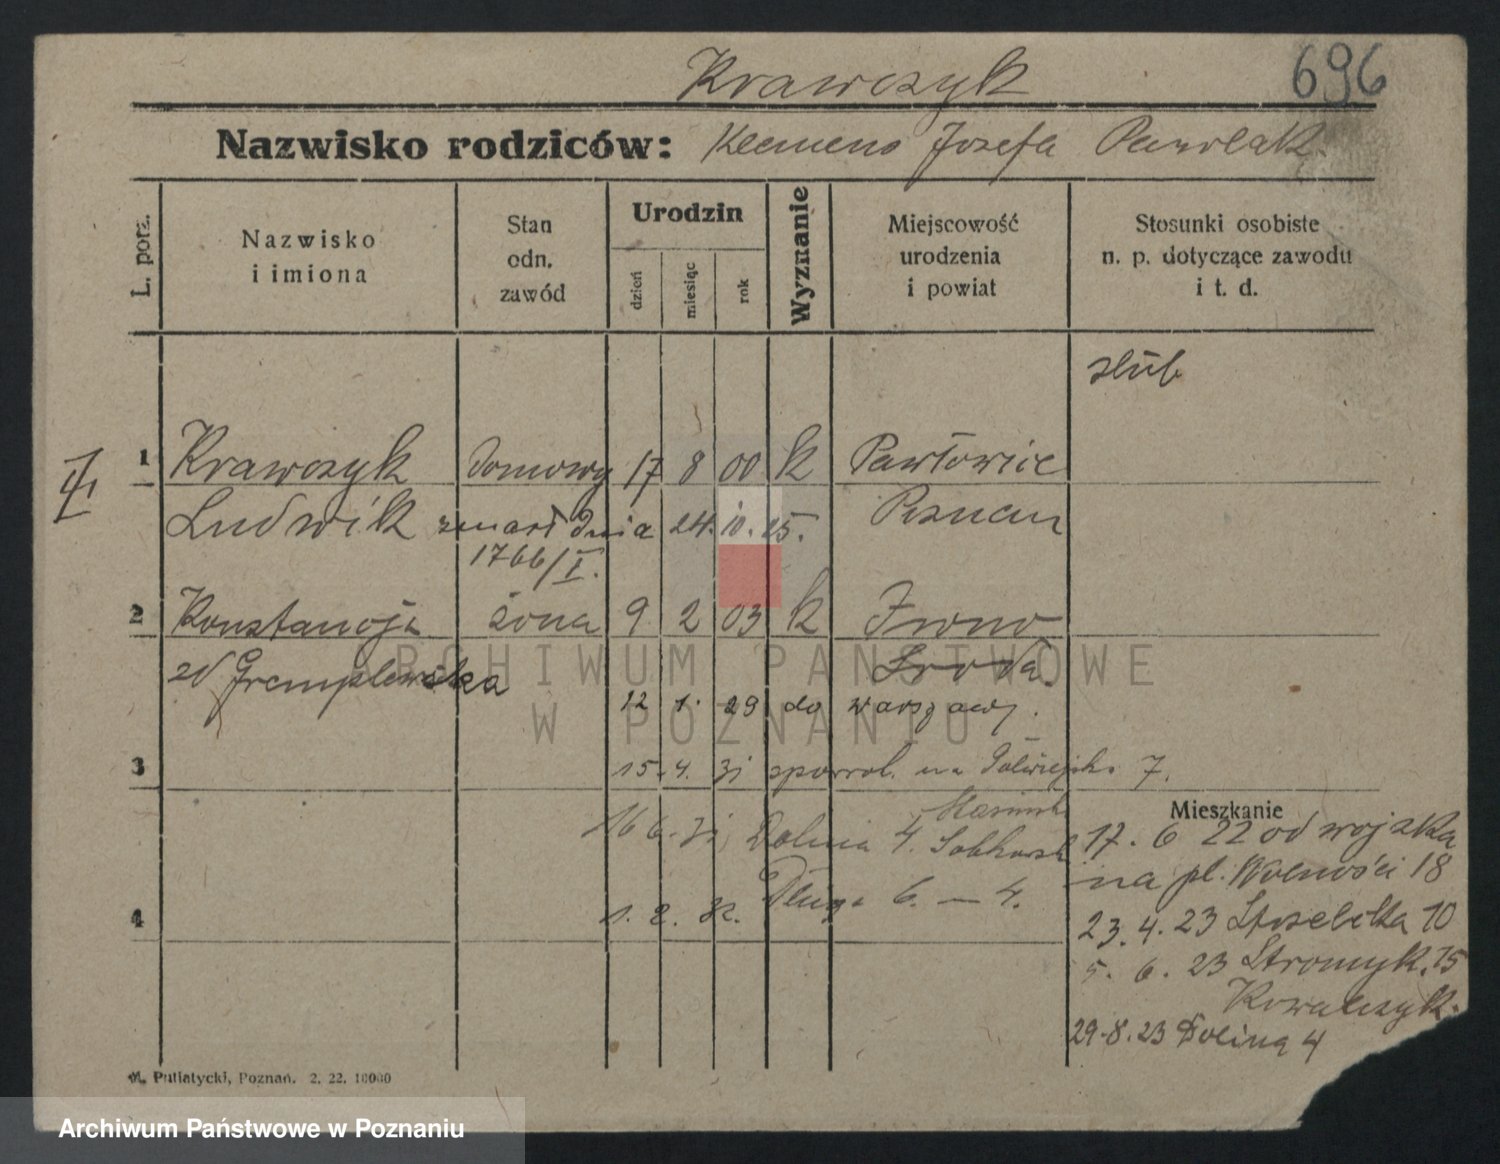 Krawczyk 696
Nazwisko rodziców: Klemens Józefa Pawlak
L. porz.
Nazwisko i imiona
Stan odn. zawód
Urodzin
dzień
miesiąc
rok
Wyznanie
Miejscowość urodzenia i powiat
Stosunki osobiste n. p. dotyczące zawodu i t. d.
ślub
1 Krawczyk domowy 17 8 00 k Pawłowice
Ludwik zmarł dnia 24. 10. 25. Poznań
1766/I.
2 Konstancja żona 9 2 03 k Iwno
zd Gremplewska Środa.
12 1. 29 do Warszawy.
3 15. 4. 31 sporrol. na Półwiejska 7.
Mieszkanie
16 6. 31 Dolina 4.
17. 6 22 od wojska
na pl. Wolności 18
4 1. 2. 32. Długa 6. — 4.
23. 4. 23 Strzelecka 10
5. 6. 23 Stromyk. 15
Kowalczyk.
29.8.23 Dolina 4
M. Putiatycki, Poznań. 2. 22. 10000
ARCHIWUM PAŃSTWOWE
W POZNANIU
Archiwum Państwowe w Poznaniu